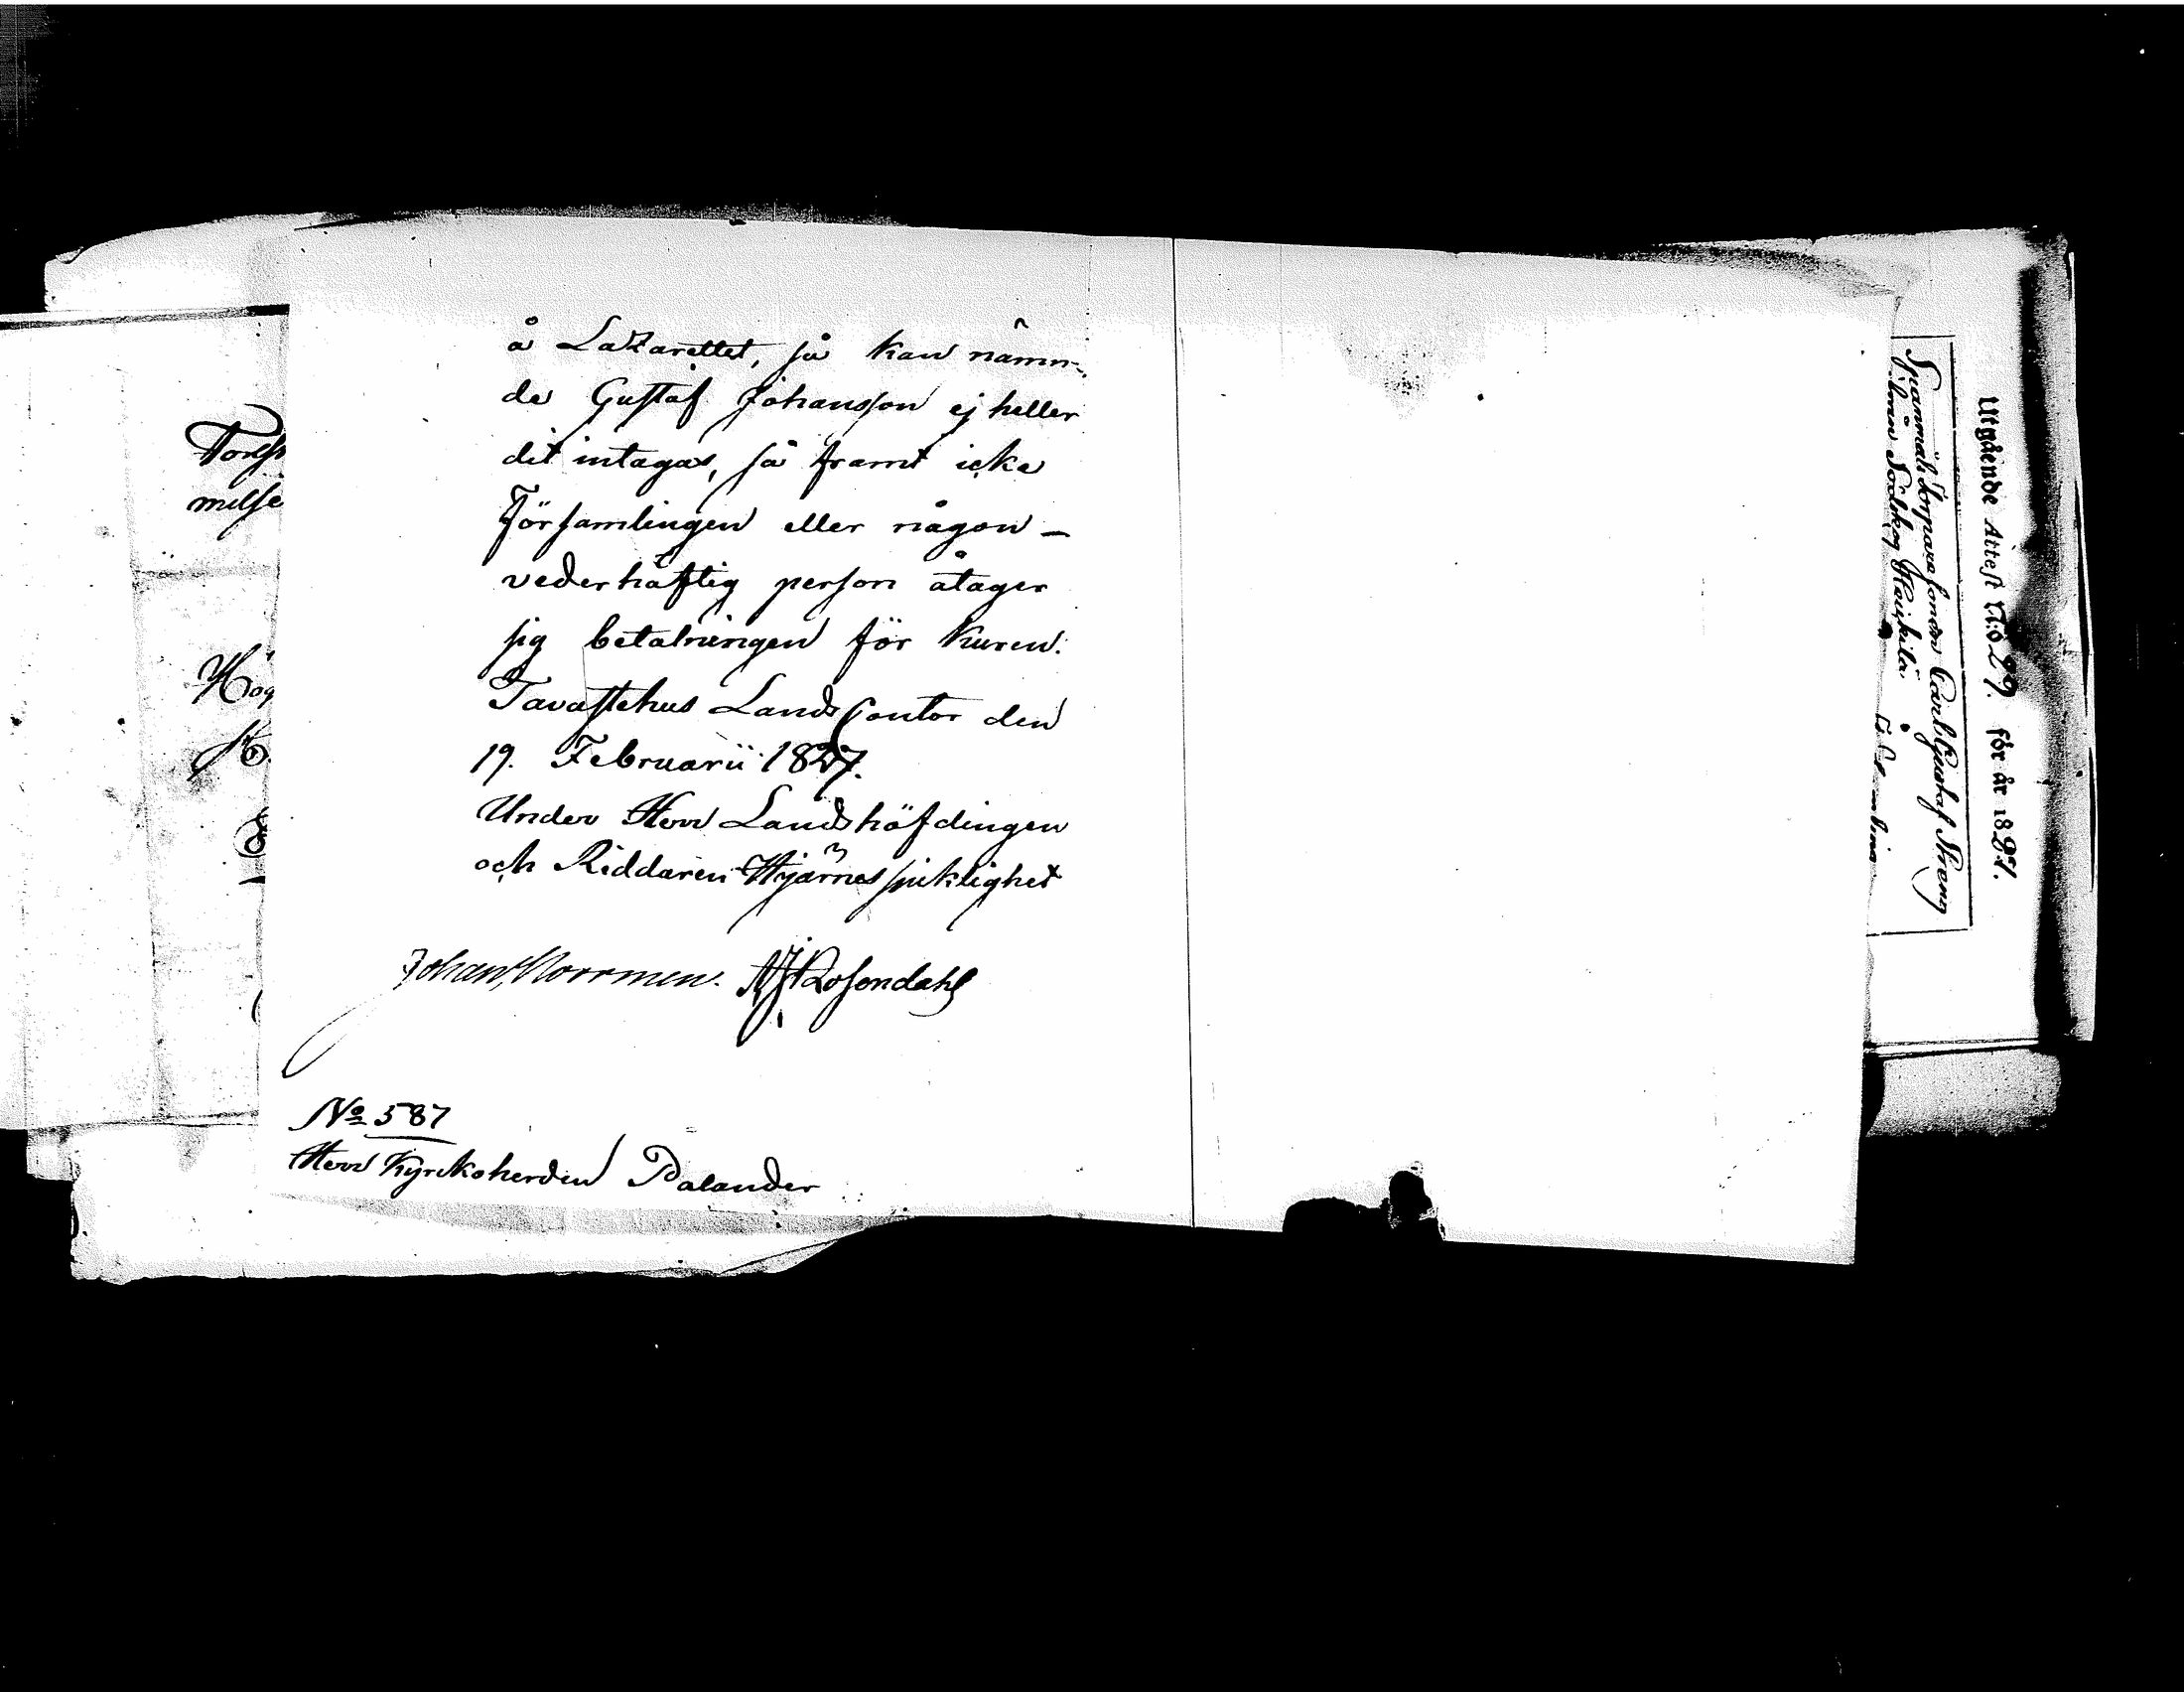 å Lazarettet, så kan nämn-
de Gustaf Johansson ej heller
dit intagas, så framt icke
Församlingen eller någon –
vederhäftig person åtager
sig betalningen för kuren.
Tavastehus Lands Contor den
19. Februarii 1827.
Under Herr Landshöfdingen
och Riddaren Hjärnes sjuklighet
Johan Norrmen. Rosendahl
No 587
Herr Kyrckoherden Palander
Utgående Attest N:o 29. för år 1827.
Carl Gustaf